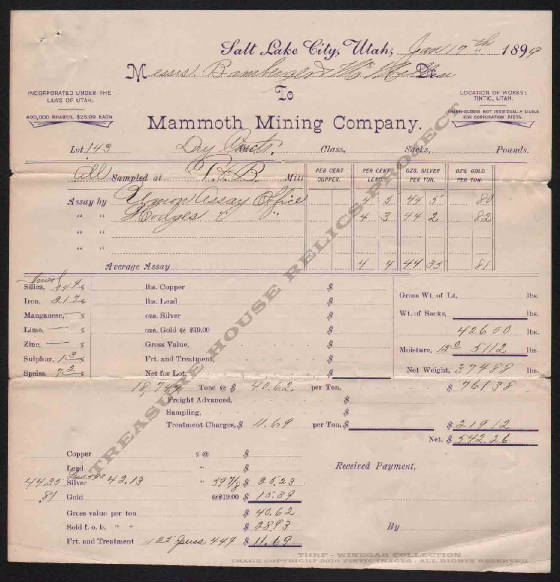 Salt Lake City, Utah, Jan 17th 1899
Messrs. Bamberger & Mc Millan Dr.
INCORPORATED UNDER THE
LAWS OF UTAH.
To
LOCATION OF WORKS:
TINTIC, UTAH.
400,000 SHARES, $25.00 EACH
STOCKHOLDERS NOT INDIVIDUALLY LIABLE
FOR CORPORATION DEBTS.
Mammoth Mining Company.
Lot 143 Dry Class, Sacks, Pounds.
Sampled at Mill
PER CENT COPPER. PER CENT LEAD OZS. SILVER PER TON. OZS GOLD PER TON.
Assay by Union Assay Office 4 5 44 5 80
" " Hodges " 4 3 44 2 82
" "
Average Assay 4 4 44 35 81
Silica, lbs. Copper $
Iron, 21.7 lbs. Lead $ Gross Wt. of Lot, lbs.
Manganese, ozs. Silver $ Wt. of Sacks, lbs.
Lime, ozs. Gold @ $19.00 $ 42600
Zinc, Gross Value, $ Moisture, 5112 lbs.
Sulphur, 1.3 Frt. and Treatment, $
Speiss, 7.2 Net for Lot, $ Net Weight, 37488 lbs.
18,744 Tons @ $ 40.62 per Ton. $ 761.38
Freight Advanced, $
Sampling, $
Treatment Charges, $ 11.69 per Ton. $ $ 219.12
Net, $ 542.26
Copper s @ $
Lead " $ Received Payment,
44.35 Silver 42.13 " 59 7/8 $ 25.23
81 Gold @$19.00 $ 15.39
Gross value per ton $ 40.62
Sold f. o. b. " " $ 28.93
Frt. and Treatment $ 11.69 By
TREASURE HOUSE RELICS PROJECT
THRP - WINEGAR COLLECTION
IMAGE COPYRIGHT 2010 ALL RIGHTS RESERVED